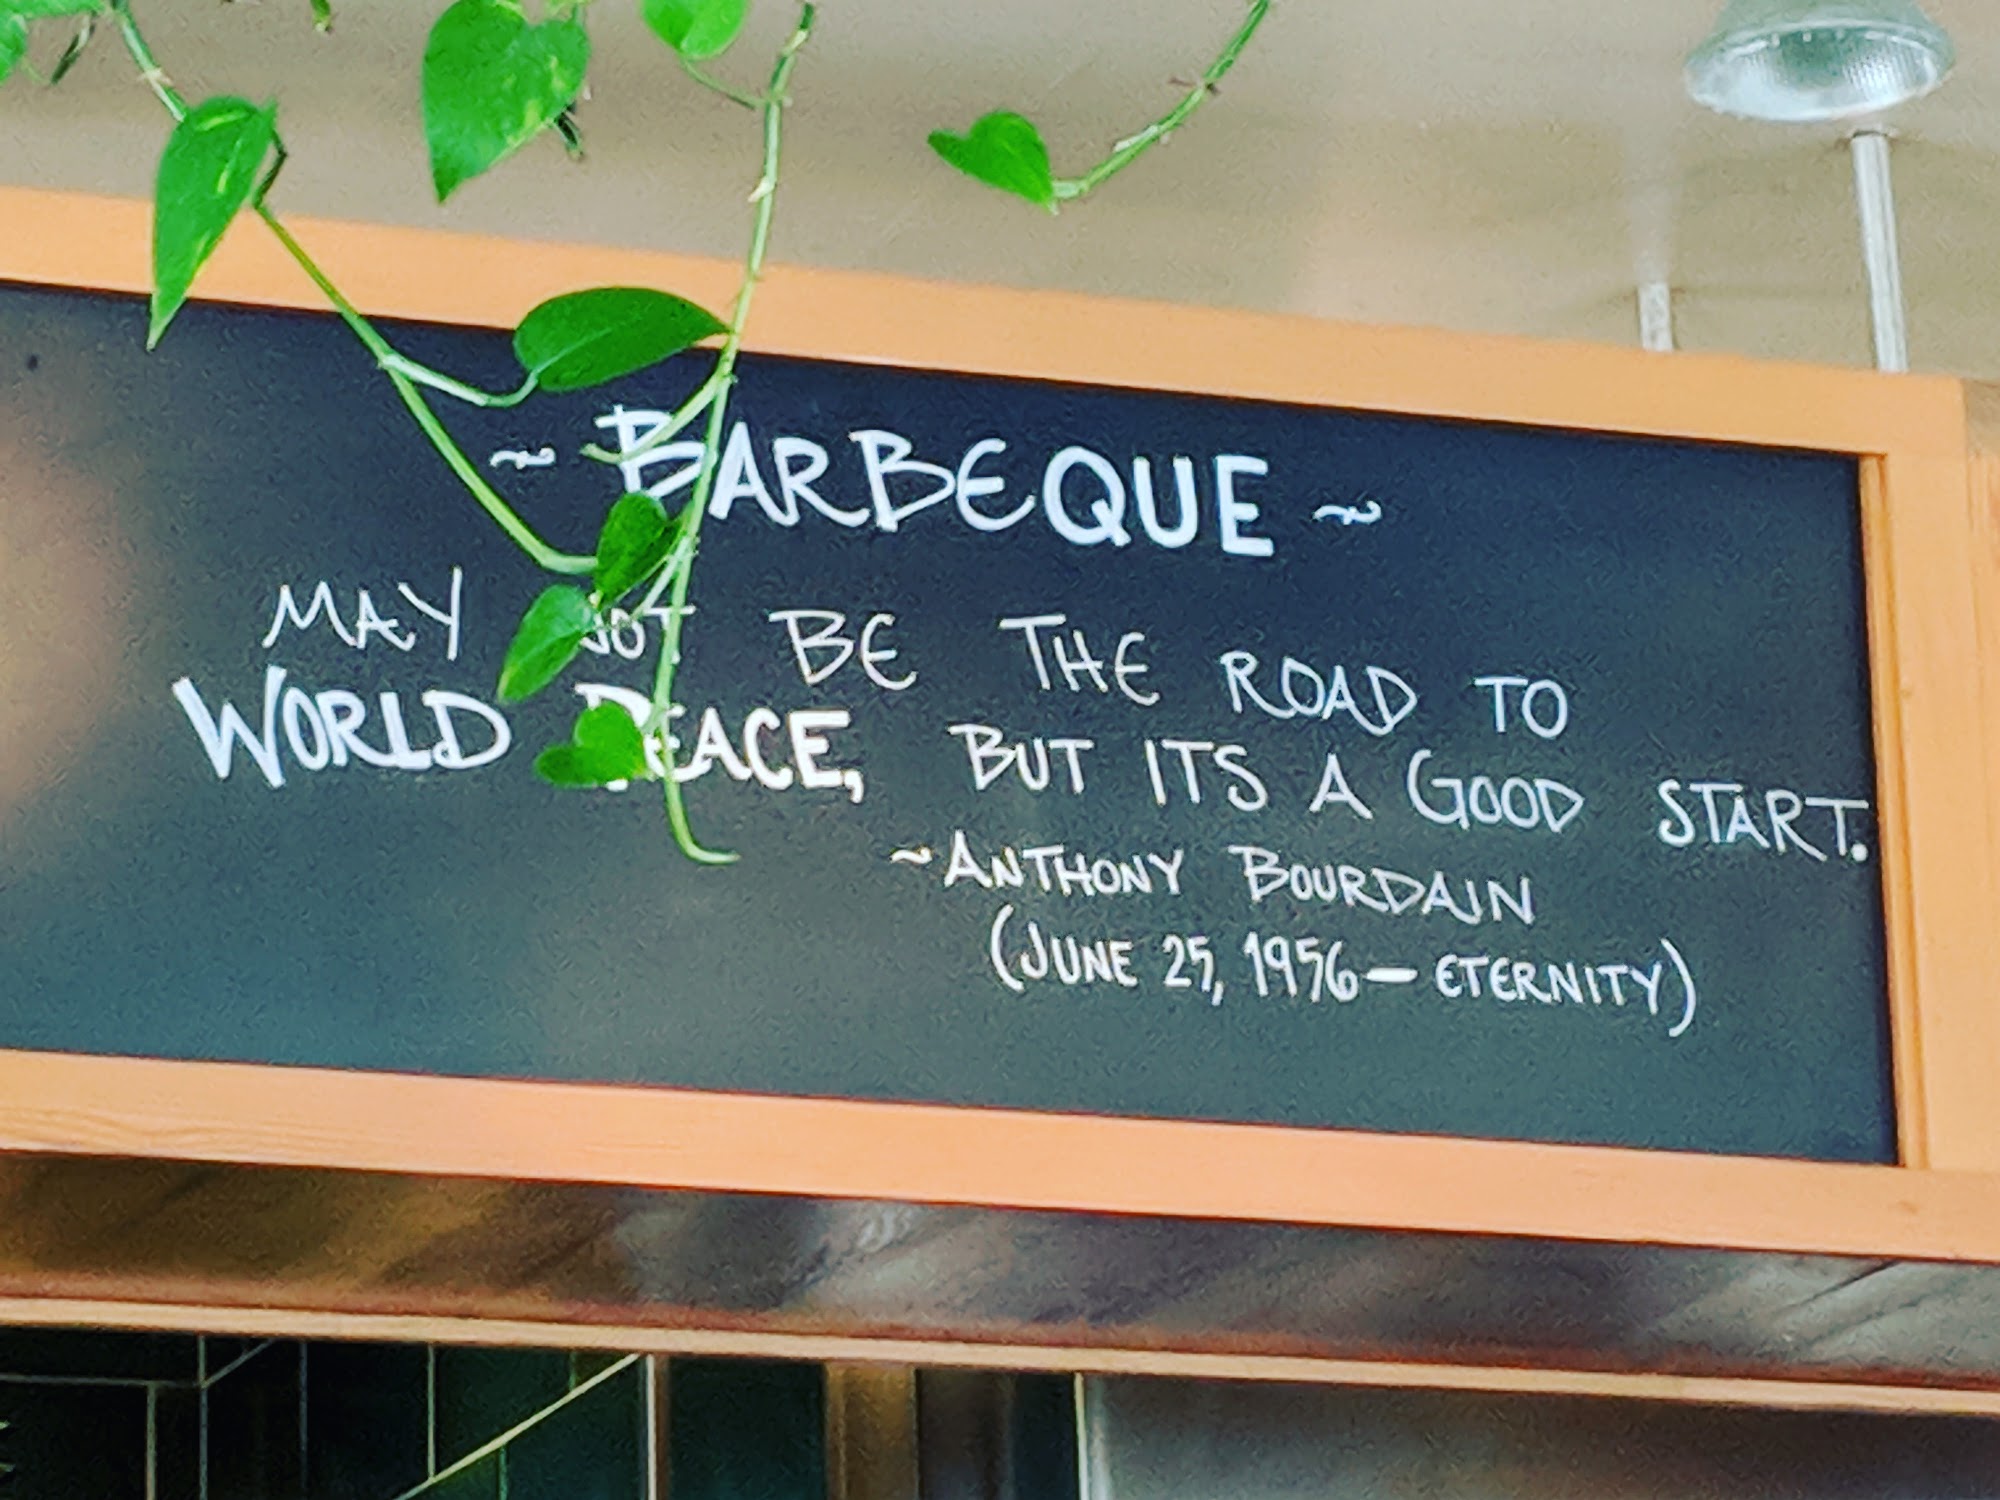 ~ BARBEQUE ~
MAY NOT BE THE ROAD TO
WORLD PEACE, BUT ITS A GOOD START.
~ANTHONY BOURDAIN
(JUNE 25, 1956 — ETERNITY)